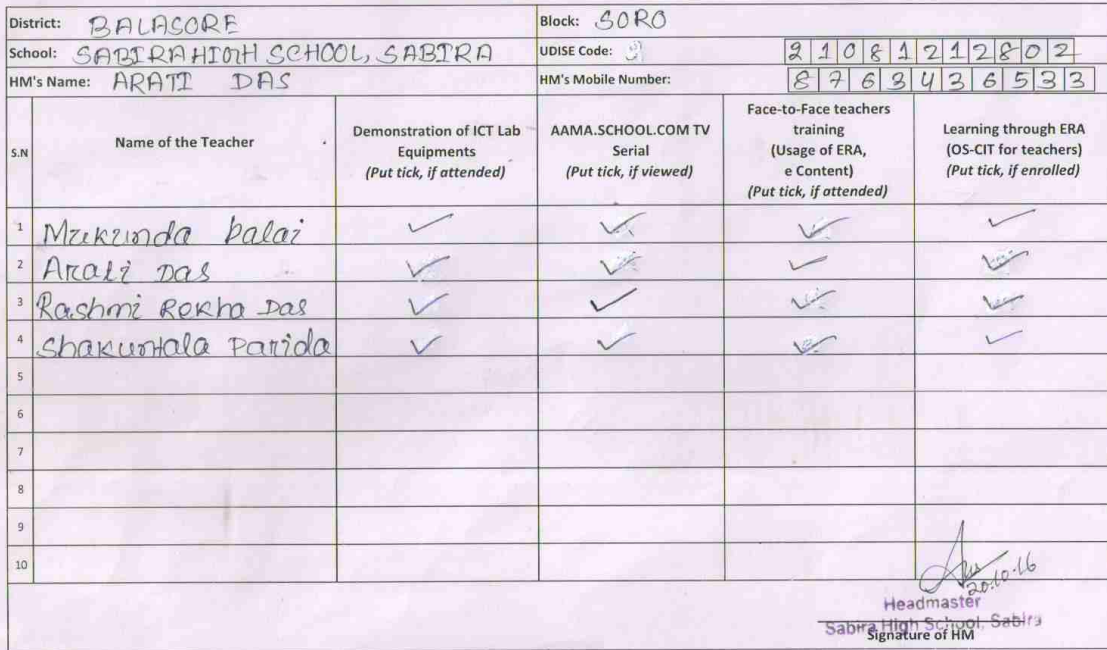 District: BALASORE Block: SORO
School: SABIRA HIGH SCHOOL, SABIRA UDISE Code: 21081212802
HM's Name: ARATI DAS HM's Mobile Number: 8763436533
S.N Name of the Teacher Demonstration of ICT Lab Equipments (Put tick, if attended) AAMA.SCHOOL.COM TV Serial (Put tick, if viewed) Face-to-Face teachers training (Usage of ERA, e Content) (Put tick, if attended) Learning through ERA (OS-CIT for teachers) (Put tick, if enrolled)
1 Mukunda balai ✓ ✓ ✓ ✓
2 Arati Das ✓ ✓ ✓ ✓
3 Rashmi Rekha Das ✓ ✓ ✓ ✓
4 Shakuntala Parida ✓ ✓ ✓ ✓
5
6
7
8
9
10
20.10.16
Headmaster
Sabira High School, Sabira
Signature of HM